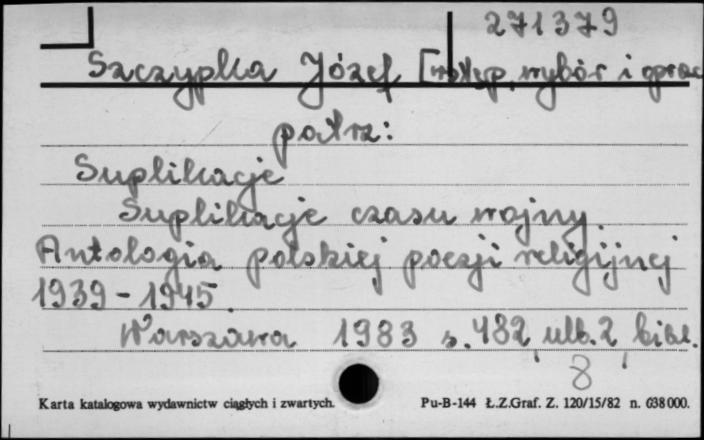 271379
Szczypka Józef [wstęp, wybór i oprac
patrz:
Suplikacje
Suplikacje czasu wojny.
Antologia polskiej poezji religijnej
1939-1945.
Warszawa 1983 s. 482, nlb. 2, bibl.
8
Karta katalogowa wydawnictw ciągłych i zwartych. Pu-B-144 Ł.Z.Graf. Z. 120/15/82 n. 638000.